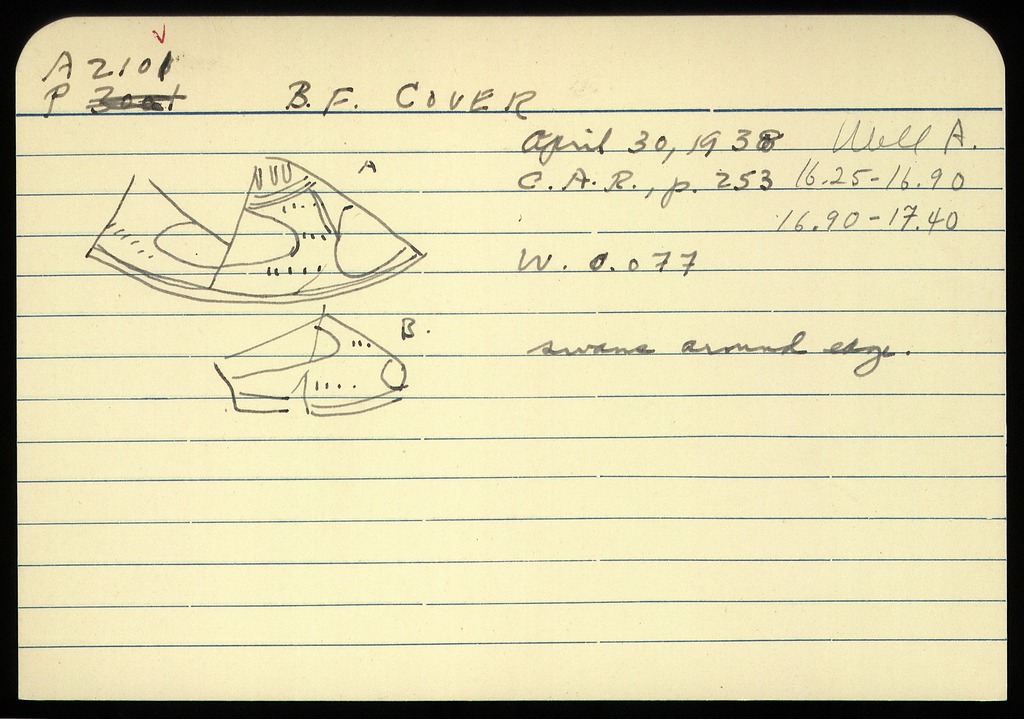 A 2101
P
B. F. COVER
April 30, 1938 Well A.
C. A. R., p. 253 16.25-16.90
16.90-17.40
W. 0.077
A
B.
swans around edge.